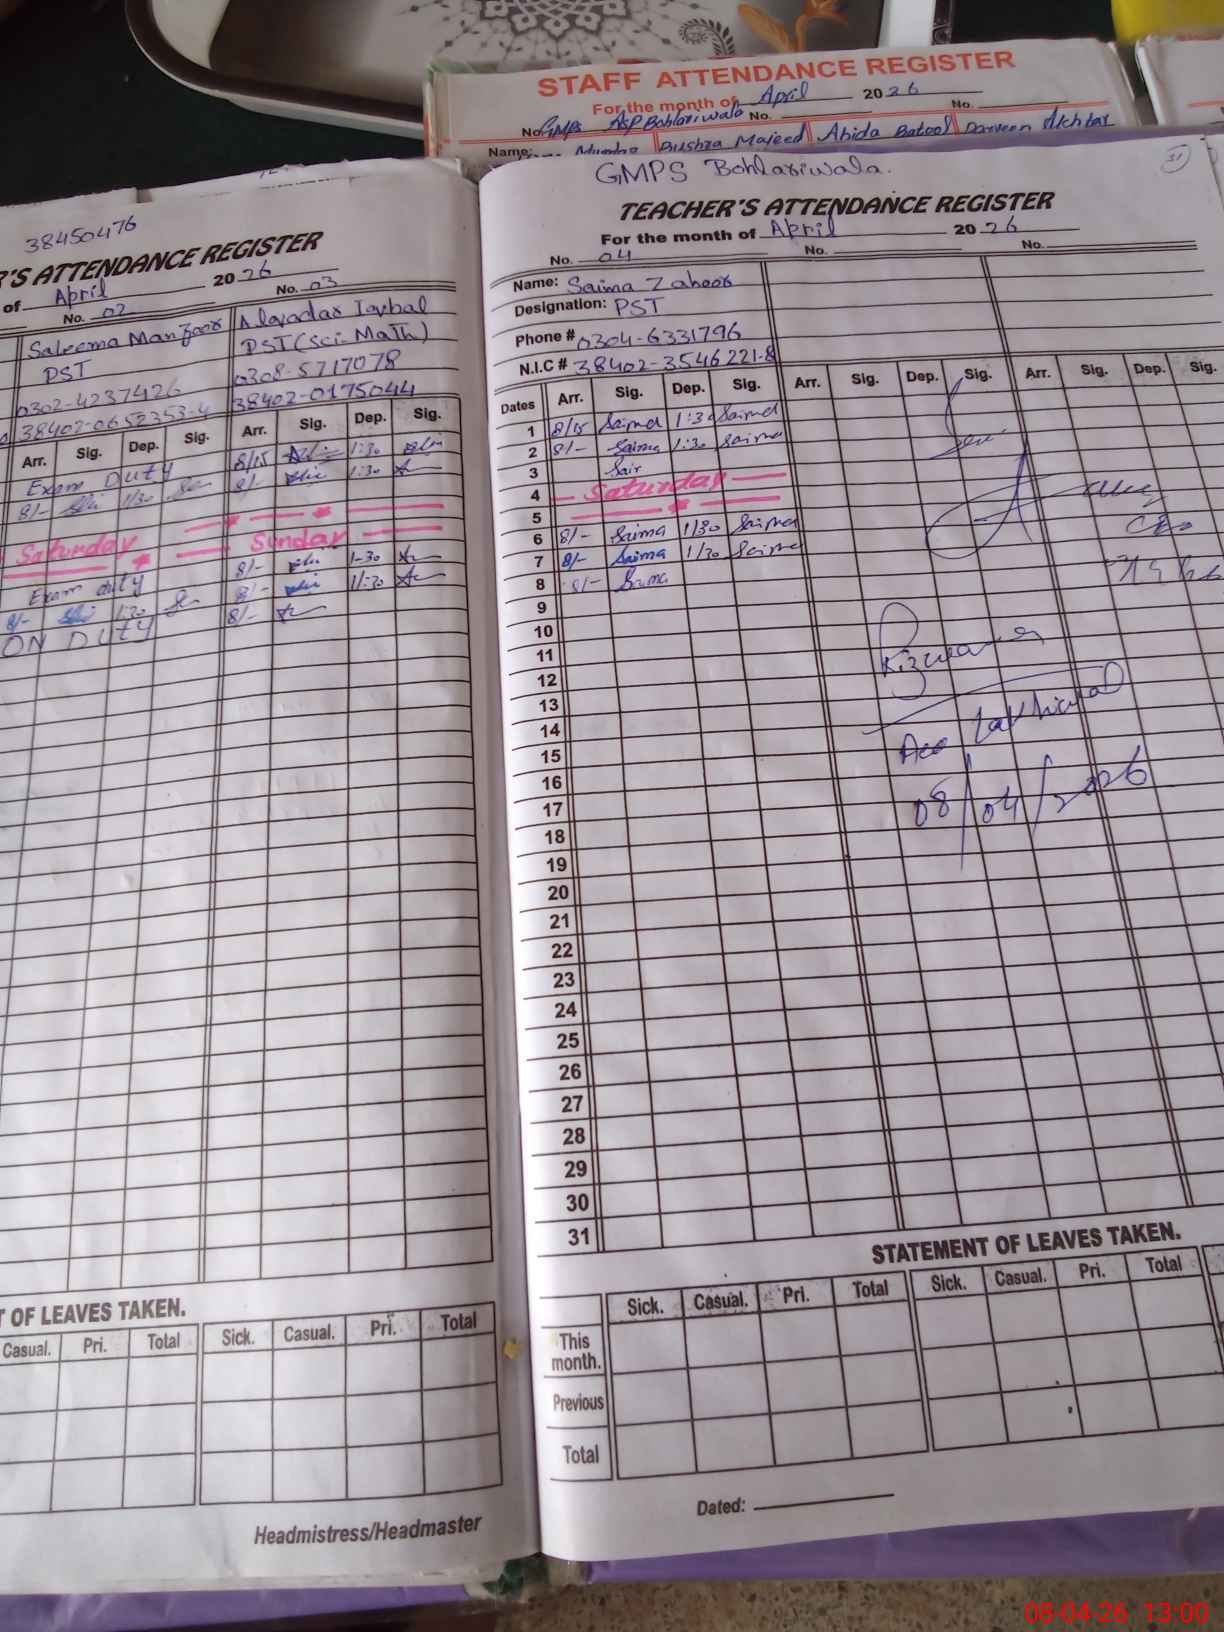 STAFF ATTENDANCE REGISTER
For the month of April 2026
No. GMPS ASP Bohlariwala No. No.
Name: Mumtaz Bushra Majeed Abida Batool Parveen Akhtar
38450476
R'S ATTENDANCE REGISTER
of April 2026
No. 02 No. 03
Saleema Manzoor Alamdar Iqbal
PST PST (Sci-Math)
0302-4237426 0308-5717078
38402-0652353-4 38402-0175044
Arr. Sig. Dep. Sig. Arr. Sig. Dep. Sig.
Exam Duty 8/15 1:30
8/- 1/30 8/- 1:30
Saturday Sunday
Exam duty 8/- 1-30
8/- 1:30 8/- 1:30
ON DUTY 8/-
T OF LEAVES TAKEN.
Casual. Pri. Total Sick. Casual. Pri. Total
Headmistress/Headmaster
GMPS Bohlariwala.
31
TEACHER'S ATTENDANCE REGISTER
For the month of April 2026
No. 04 No. No.
Name: Saima Zahoor
Designation: PST
Phone # 0304-6331796
N.I.C # 38402-3546221-8
Dates Arr. Sig. Dep. Sig. Arr. Sig. Dep. Sig. Arr. Sig. Dep. Sig.
1 8/15 Saima 1:30 Saima
2 8/- Saima 1:30 Saima
3 Sair
4 Saturday
5
6 8/- Saima 1/30 Saima
7 8/- Saima 1/30 Saima
8 8/- Saima
9
10
11
12
13
14
15
16
17
18
19
20
21
22
23
24
25
26
27
28
29
30
31
08/04/2026
STATEMENT OF LEAVES TAKEN.
Sick. Casual. Pri. Total Sick. Casual. Pri. Total
This month.
Previous
Total
Dated:
08-04-26 13:00